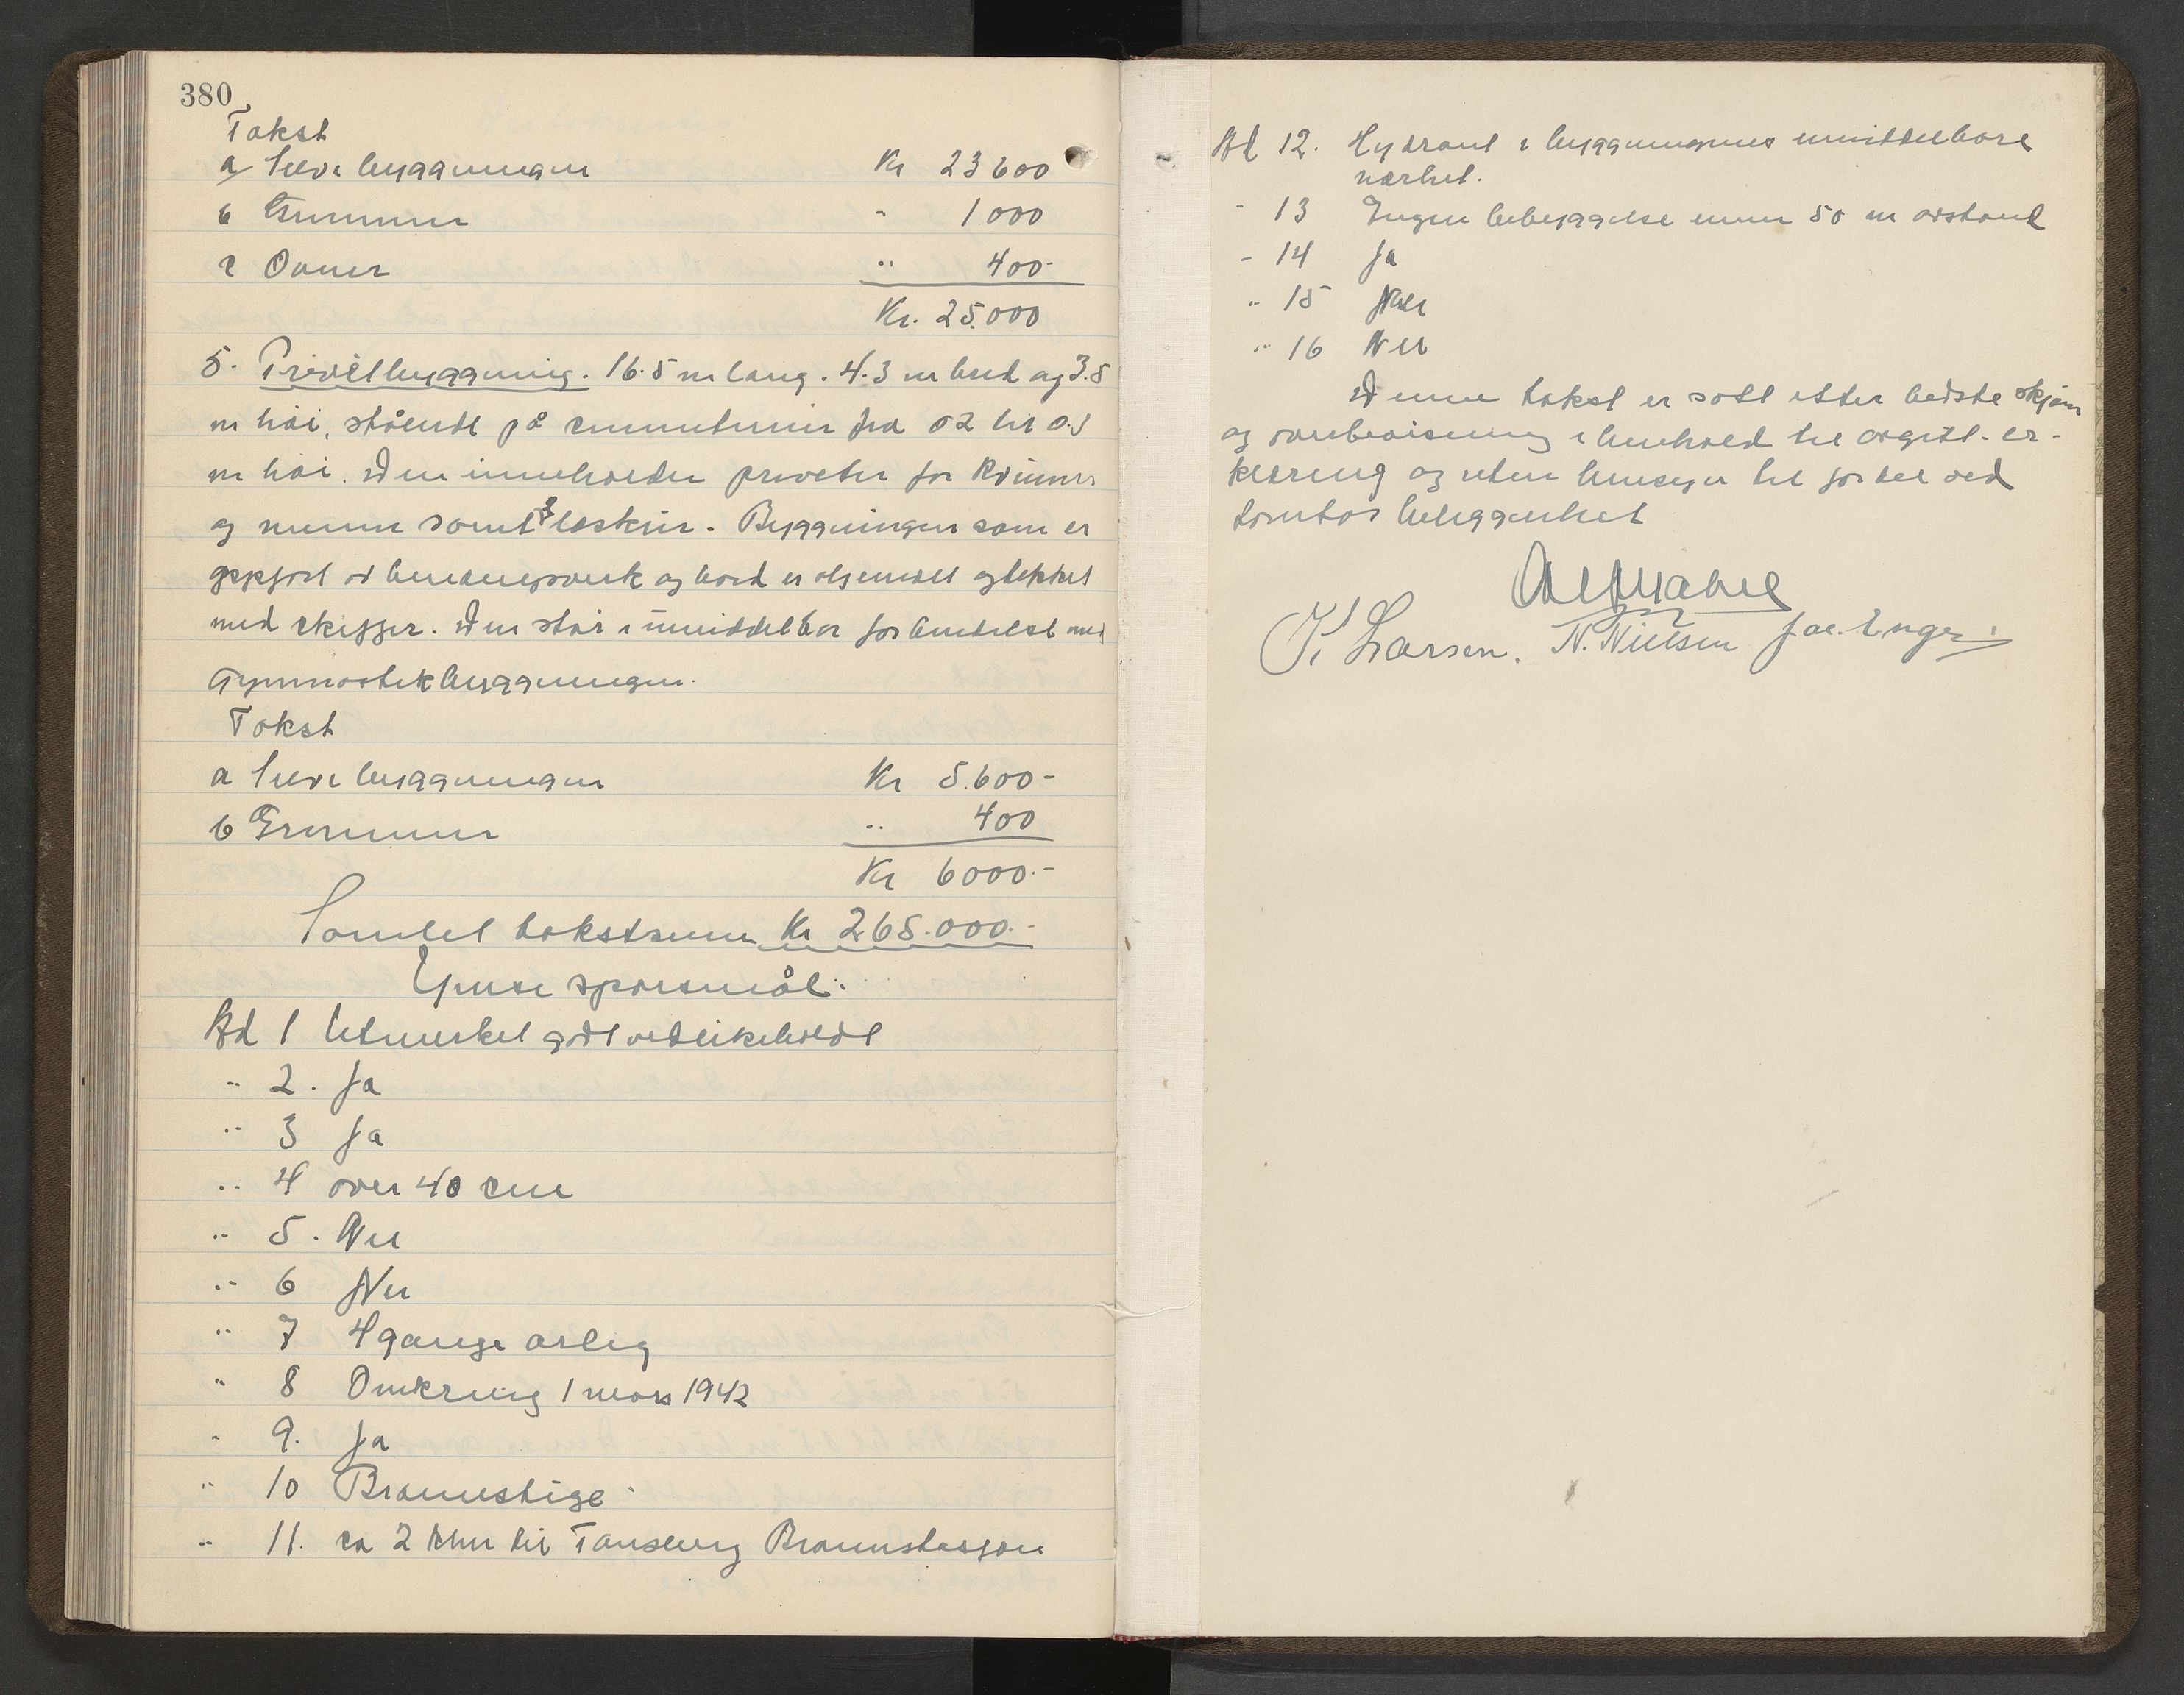 380
Takst
a Selve byggningen Kr 23600
b Grunnmur - 1000
c Ovner " 400-
Kr. 25.000
5. Privétbyggning. 16.5 m lang. 4.3 m bred og 3.5
m høi, stående på cementmur fra 0.2 til 0.5
m høi. Den inneholder priveter for kvinner
og menn samt 3 leskur. Byggningen som er
oppført av bindingsverk og bord er oljemalt og tekket
med skiffer. Den står i umiddelbar forbindelse med
Gymnastikbyggningen.
Takst
a Selve byggningen Kr 5.600-
b Grunnmur " 400
Kr 6000.-
Samlet takstsum Kr 265.000.-
Ymse spørsmål:
Ad 1 Utmerket godt vedlikeholdt
" 2. Ja
" 3 Ja
" 4 over 40 cm
" 5. Nei
" 6 Nei
" 7 4 gange årlig
" 8 Omkring 1 mars 1942
" 9. Ja
" 10 Brannstige
" 11. ca 2 klm til Tønsberg Brannstasjon
Ad 12. Hydrant i byggningenes umiddelbare
nærhet.
- 13 Ingen bebyggelse innen 50 m avstand
- 14 Ja
" 15 Nei
" 16 Nei
Denne takst er satt etter bedste skjøn
og overbevisning i henhold til avgitt er-
klæring og uten hensyn til fordel ved
tomtas beliggenhet
K Larsen. N. Nielsen Jac. Enger